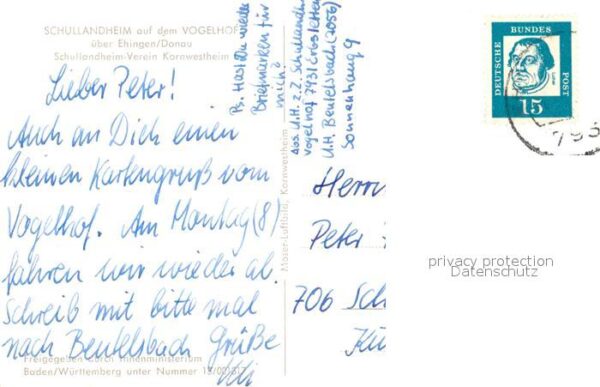 SCHULLANDHEIM auf dem VOGELHOF
über Ehingen/Donau
Schullandheim-Verein Kornwestheim
Lieber Peter!
Auch an Dich einen
kleinen Kartengruß vom
Vogelhof. Am Montag (8)
fahren wir wieder ab.
Schreib mit bitte mal
nach Beutelsbach Grüße
Uli
Freigegeben durch Innenministerium
Baden/Württemberg unter Nummer
Ps. Hast Du wieder
Briefmarken für
mich?
Moser-Luftbild, Kornwestheim
Abs. U.H. z.Z. Schullandheim
Vogelhof 7931 Erbstetten
U.H. Beutelsbach (7056)
Sonnenhang 9
DEUTSCHE BUNDES POST
15
793
Herrn
Peter
706 Sch
privacy protection
Datenschutz